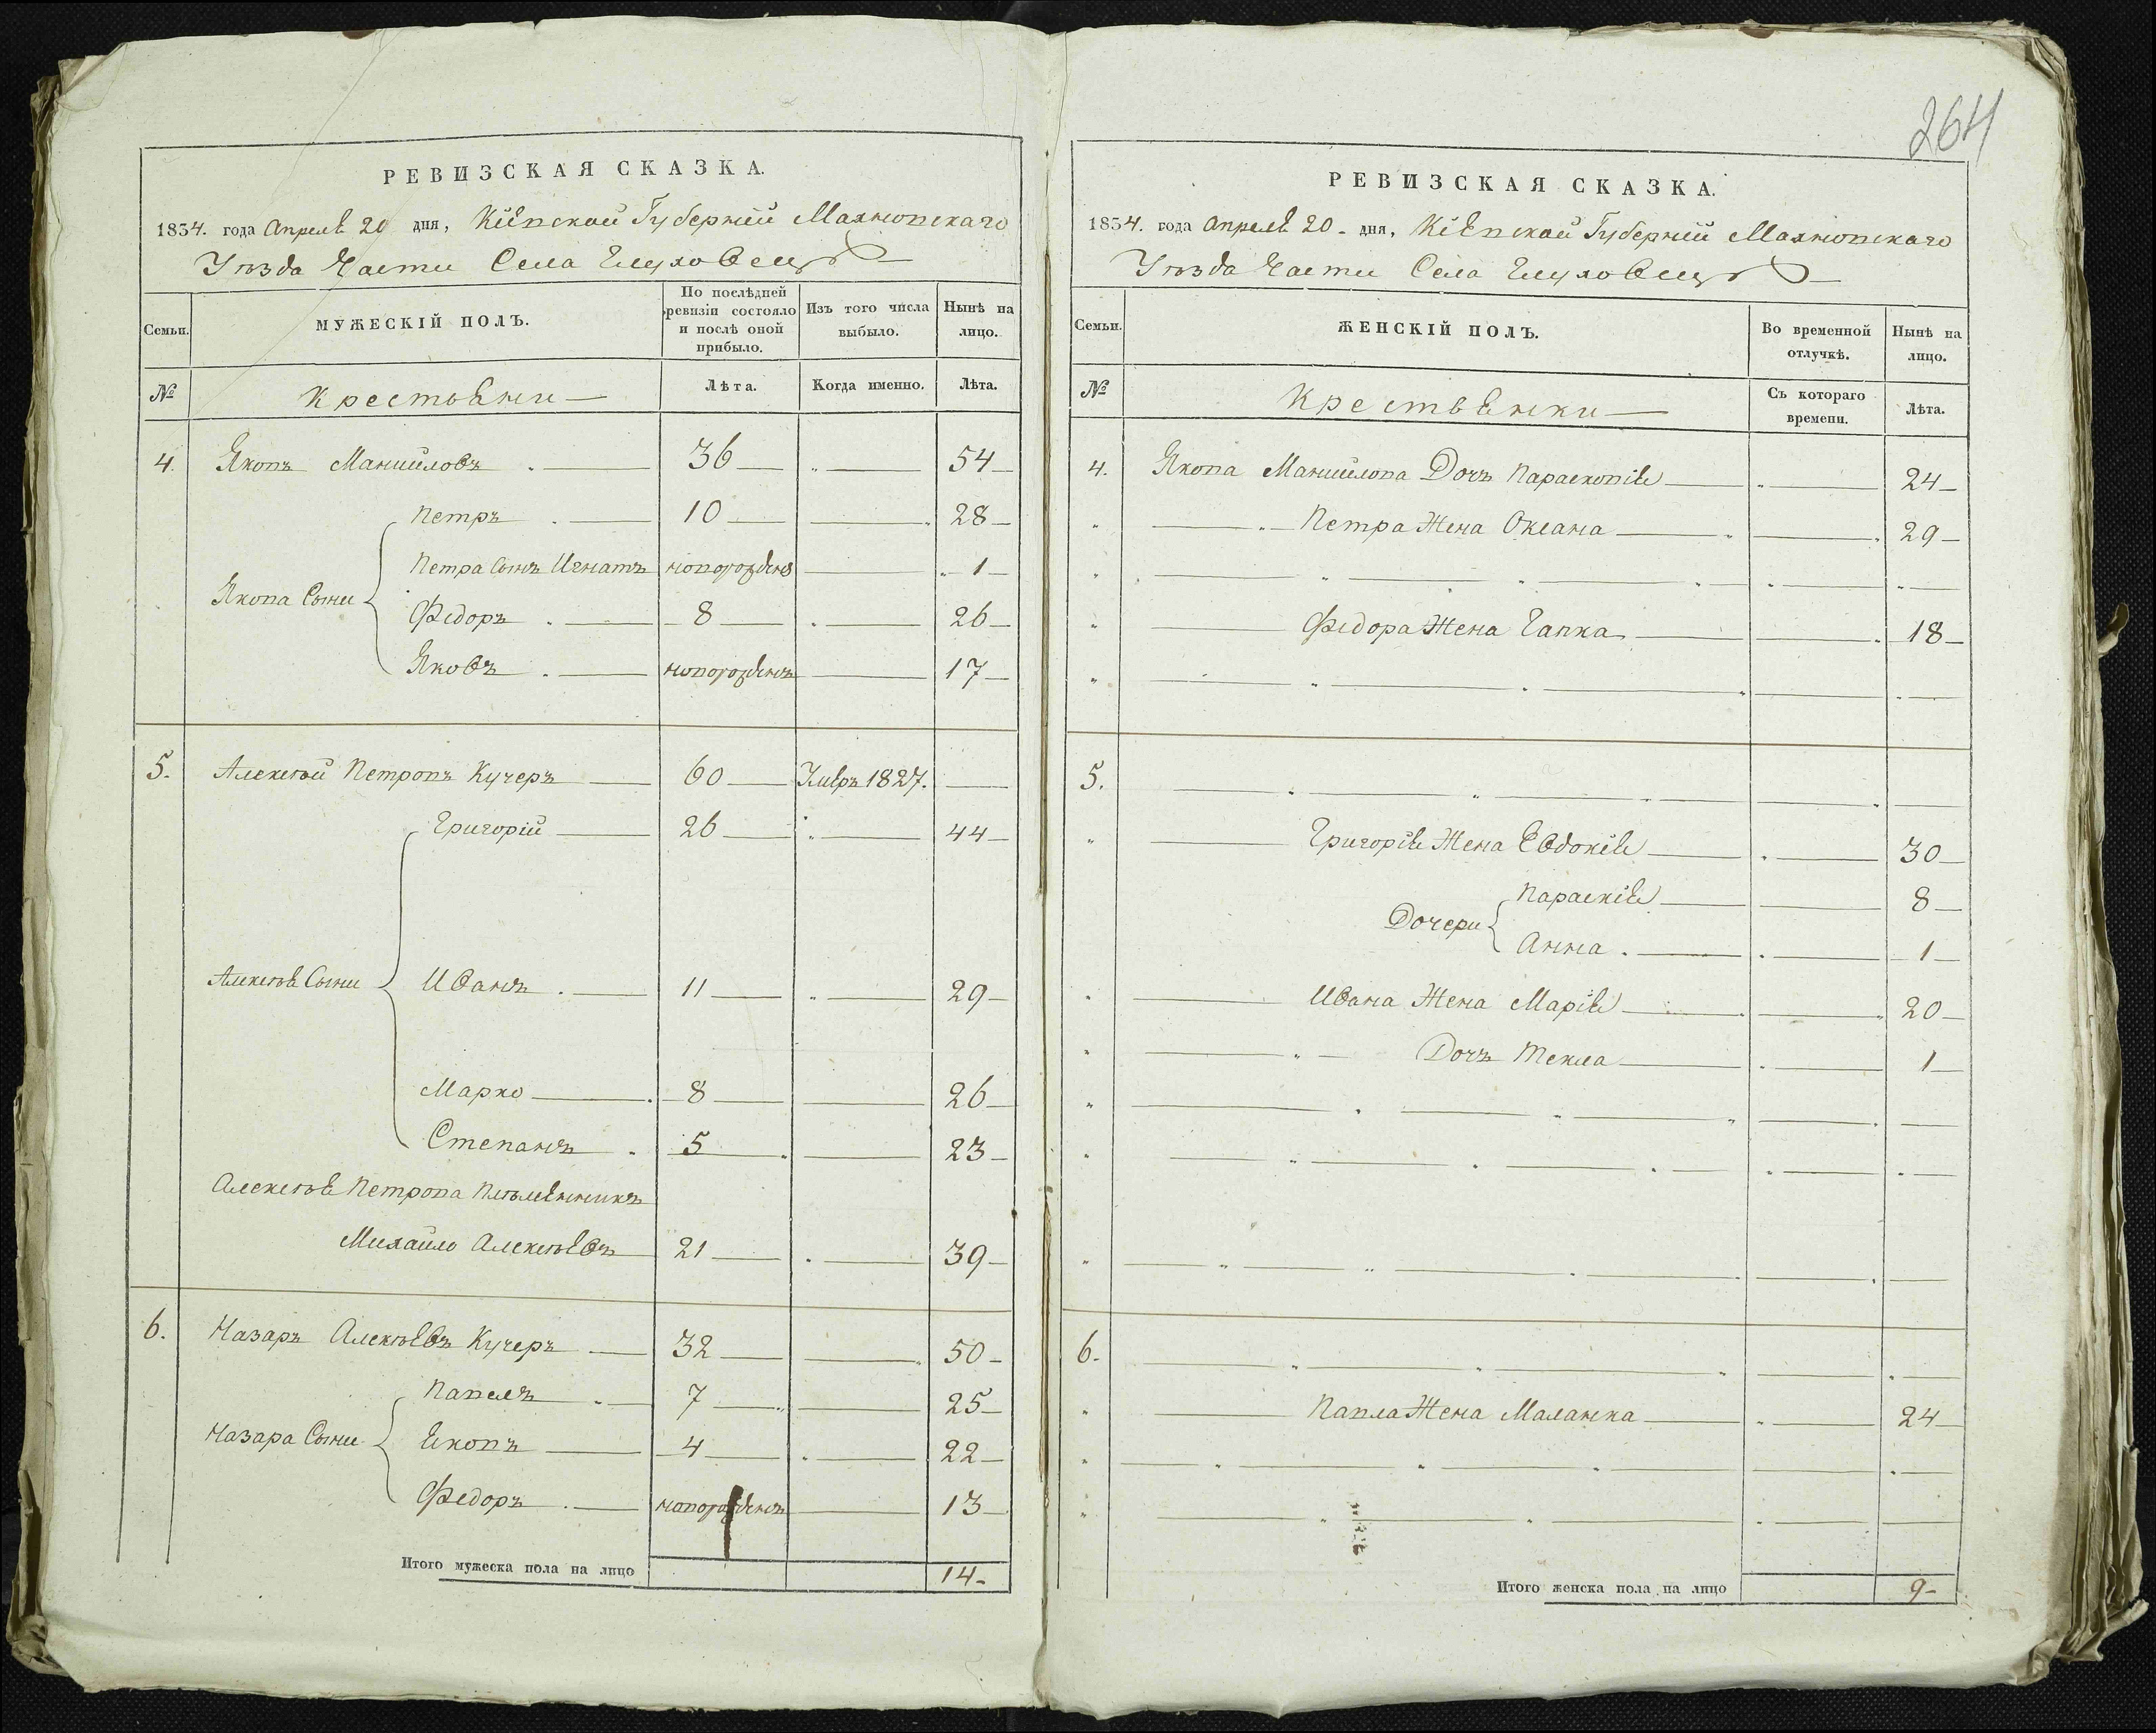 264
РЕВИЗСКАЯ СКАЗКА.
1834. года Апреля 20 дня, Кіевской Губерніи Махновскаго
Уѣзда Части Села Глуховецъ
Семьи. МУЖЕСКІЙ ПОЛЪ. По послѣдней ревизіи состояло и послѣ оной прибыло. Изъ того числа выбыло. Нынѣ на лицо.
№ Крестьяни Лѣта. Когда именно. Лѣта.
4. Яковъ Мануйловъ 36 54
Петръ 10 28
Петра Сынъ Игнатъ новорожденъ 1
Якова Сыни
Федоръ 8 26
Яковъ новорожденъ 17
5. Алексѣй Петровъ Кучеръ 60 Умеръ 1827.
Григорій 26 44
Алексѣя Сыни Иванъ 11 29
Марко 8 26
Степанъ 5 23
Алексѣя Петрова Племянникъ
Михайло Алексѣевъ 21 39
6. Назаръ Алексѣевъ Кучеръ 32 50
Павелъ 7 25
Назара Сыни Яковъ 4 22
Федоръ новорожденъ 13
Итого мужеска пола на лицо 14
РЕВИЗСКАЯ СКАЗКА.
1834. года Апреля 20 дня, Кіевской Губерніи Махновскаго
Уѣзда Части Села Глуховецъ
Семьи. ЖЕНСКІЙ ПОЛЪ. Во временной отлучкѣ. Нынѣ на лицо.
№ Крествянки Съ котораго времени. Лѣта.
4. Якова Мануйлова Дочь Парасковія 24
Петра Жена Оксана 29
Федора Жена Гапка 18
5.
Григорія Жена Евдокія 30
Параскія 8
Дочери
Анна 1
Ивана Жена Марія 20
Дочь Текла 1
6.
Павла Жена Маланка 24
Итого женска пола на лицо 9